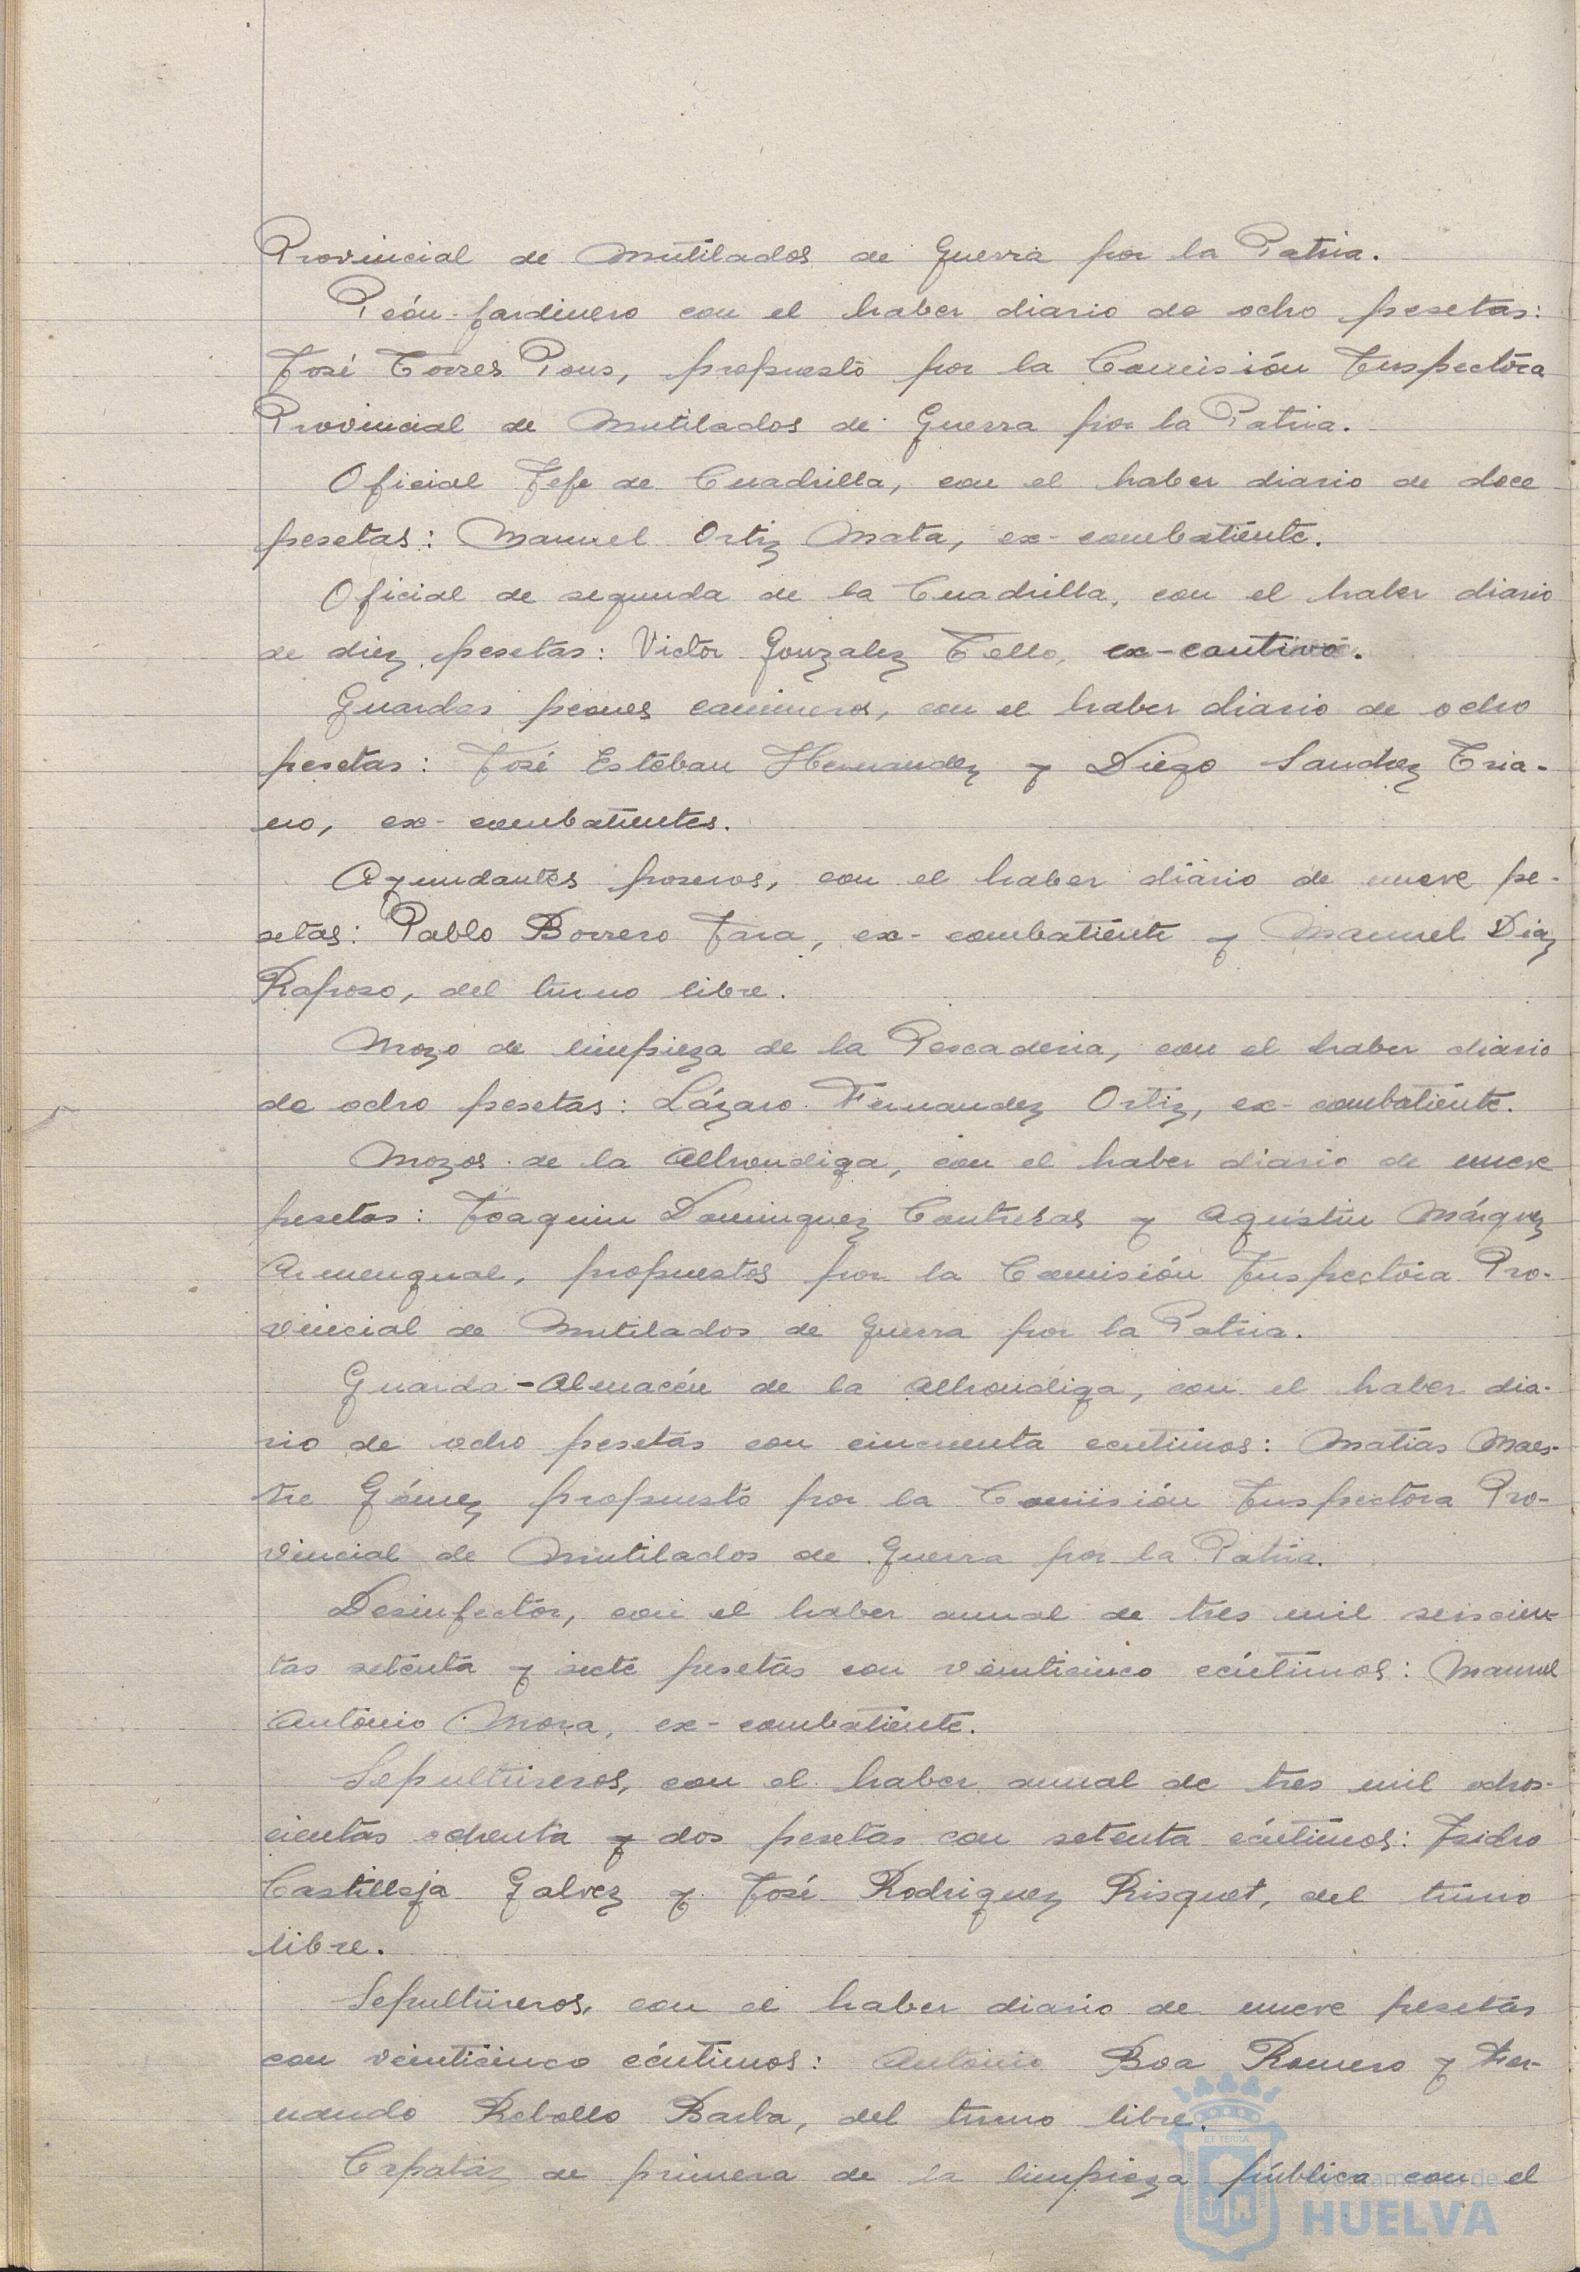 Provincial de Mutilados de Guerra por la Patria.
Peón-jardinero con el haber diario de ocho pesetas:
José Torres Pons, propuesto por la Comisión Inspectora
Provincial de Mutilados de Guerra por la Patria.
Oficial Jefe de Cuadrilla, con el haber diario de doce
pesetas: Manuel Ortiz Mata, ex-combatiente.
Oficial de segunda de la Cuadrilla, con el haber diario
de diez pesetas: Victor Gonzalez Tello, ex-cautivo.
Guardas peones camineros, con el haber diario de ocho
pesetas: José Estéban Hernandez y Diego Sanchez Tria-
no, ex-combatientes.
Ayundantes poseros, con el haber diario de nueve pe-
setas: Pablo Borrero Jara, ex-combatiente y Manuel Diaz
Raposo, del turno libre.
Mozo de limpieza de la Pescaderia, con el haber diario
de ocho pesetas: Lázaro Fernandez Ortiz, ex-combatiente.
Mozos de la Alhondiga, con el haber diario de nueve
pesetas: Joaquin Dominguez Contreras y Agustin Márquez
Armengual, propuestos por la Comisión Inspectora Pro-
vincial de Mutilados de Guerra por la Patria.
Guarda-Almacén de la Alhondiga, con el haber dia-
rio de ocho pesetas con cincuenta centimos: Matias Maes-
tre Gómez propuesto por la Comisión Inspectora Pro-
vincial de Mutilados de Guerra por la Patria.
Desinfector, con el haber anual de tres mil seiscien-
tas setenta y siete pesetas con veinticinco céntimos: Manuel
Antonio Mora, ex-combatiente.
Sepultureros, con el haber anual de tres mil ochos-
cientas ochenta y dos pesetas con setenta céntimos: Isidro
Castilleja Galvez y José Rodriguez Risquet, del turno
libre.
Sepultureros, con el haber diario de nueve pesetas
con veinticinco céntimos: Antonio Boa Romero y Fer-
nando Rebollo Barba, del turno libre.
Capataz de primera de la limpieza pública con el
Ayuntamiento de
HUELVA